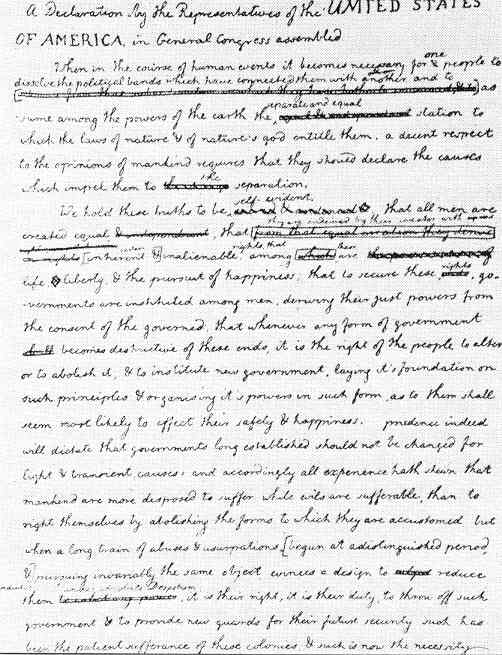 A Declaration by the Representatives of the UNITED STATES
OF AMERICA, in General Congress assembled
When in the course of human events it becomes necessary for one people to
dissolve the political bands which have connected them with another, and to as
-sume among the powers of the earth the separate and equal station to
which the laws of nature & of nature's god entitle them, a decent respect
to the opinions of mankind requires that they should declare the causes
which impel them to the separation.
We hold these truths to be self-evident, that all men are
created equal & independent, that they are endowed by their creator with
[inherent & inalienable rights, that among these are
life liberty, & the pursuit of happiness; that to secure these rights, go-
vernments are instituted among men, deriving their just powers from
the consent of the governed; that whenever any form of government
becomes destructive of these ends, it is the right of the people to alter
or to abolish it, & to institute new government, laying it's foundation on
such principles & organising it's powers in such form, as to them shall
seem most likely to effect their safety & happiness. prudence indeed
will dictate that governments long established should not be changed for
light & transient causes: and accordingly all experience hath shewn that
mankind are more disposed to suffer while evils are sufferable, than to
right themselves by abolishing the forms to which they are accustomed. but
when a long train of abuses & usurpations, [begun at a distinguished period,
&] pursuing invariably the same object, evinces a design to reduce
them it is their right, it is their duty, to throw off such
government & to provide new guards for their future security. such has
been the patient sufferance of these colonies, & such is now the necessity